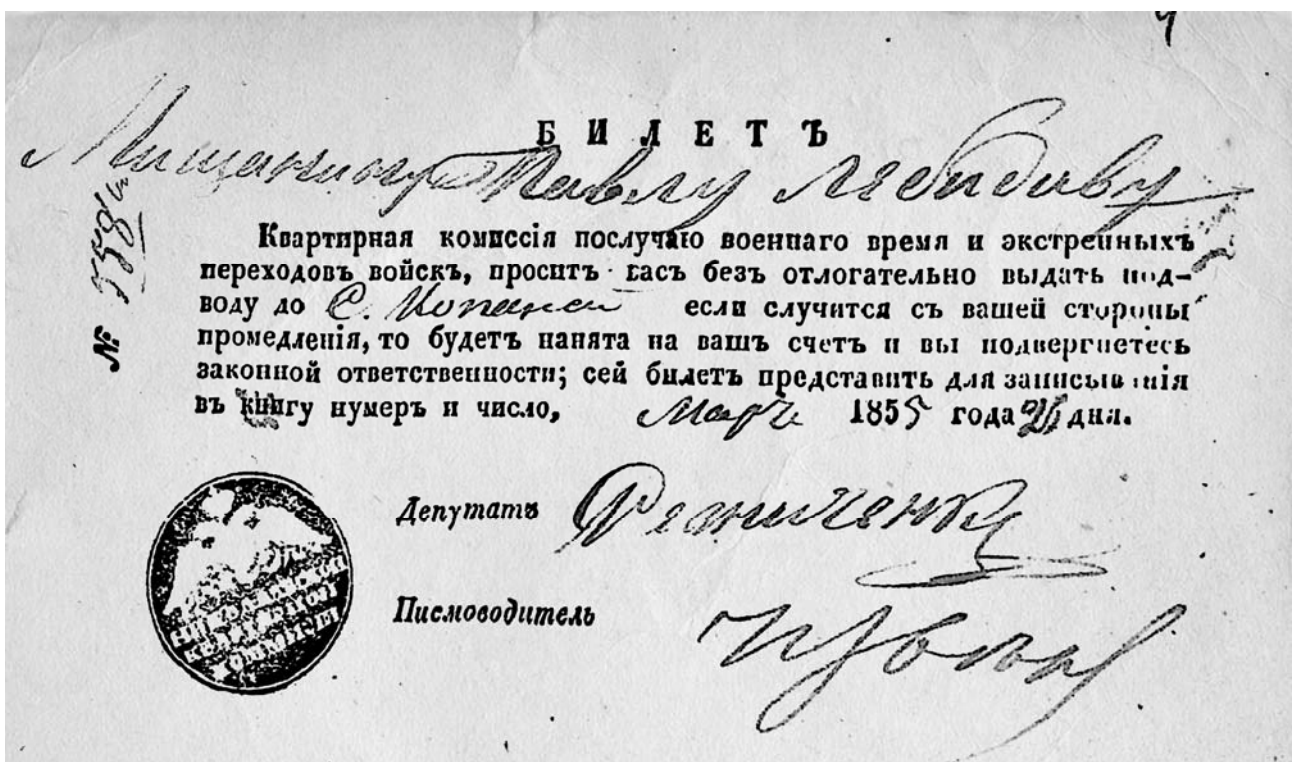 4
БИЛЕТЪ
Мищанину Павлу Лебидиву
Квартирная комиссія послучаю военнаго время и экстренныхъ
переходовъ войскъ, проситъ васъ безъ отлогательно выдать под-
воду до С. Копаней если случится съ вашей стороны
промедленія, то будетъ нанята на вашъ счетъ и вы подвергнетесь
законной ответственности; сей билетъ представить для записыванія
въ книгу нумеръ и число, 1855 года 26 дня.
№
Депутатъ
Писмоводитель